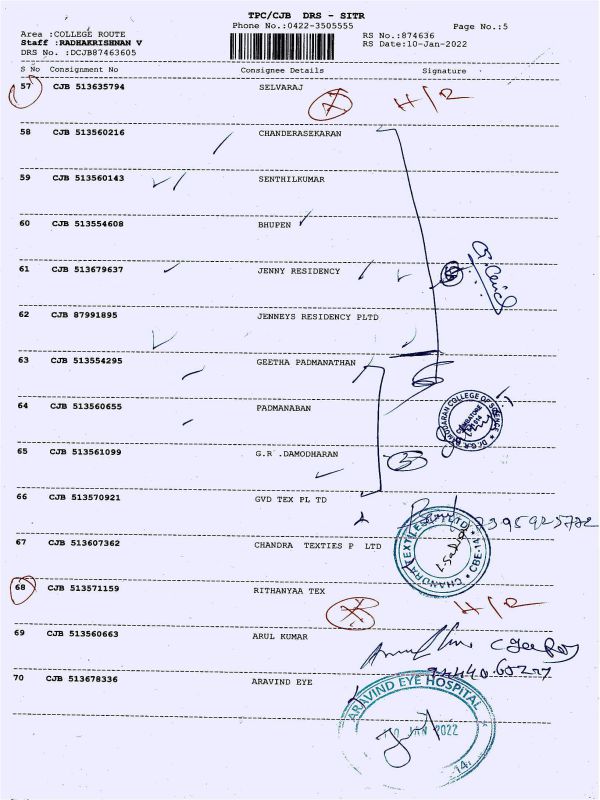 TPC/CJB DRS - SITR
Phone No.:0422-3505555 Page No.:5
Area :COLLEGE ROUTE RS No.:874636
Staff :RADHAKRISHNAN V RS Date:10-Jan-2022
DRS No. :DCJB87463605
S No Consignment No Consignee Details Signature
57 CJB 513635794 SELVARAJ
H/R
58 CJB 513560216 CHANDERASEKARAN
59 CJB 513560143 SENTHILKUMAR
60 CJB 513554608 BHUPEN
61 CJB 513679637 JENNY RESIDENCY
62 CJB 87991895 JENNEYS RESIDENCY PLTD
63 CJB 513554295 GEETHA PADMANATHAN
64 CJB 513560655 PADMANABAN
65 CJB 513561099 G.R .DAMODHARAN
66 CJB 513570921 GVD TEX PL TD
67 CJB 513607362 CHANDRA TEXTIES P LTD
CHANDRA TEXTILES CBE-14
68 CJB 513571159 RITHANYAA TEX
H/R
69 CJB 513560663 ARUL KUMAR
70 CJB 513678336 ARAVIND EYE
ARAVIND EYE HOSPITAL
JAN 2022